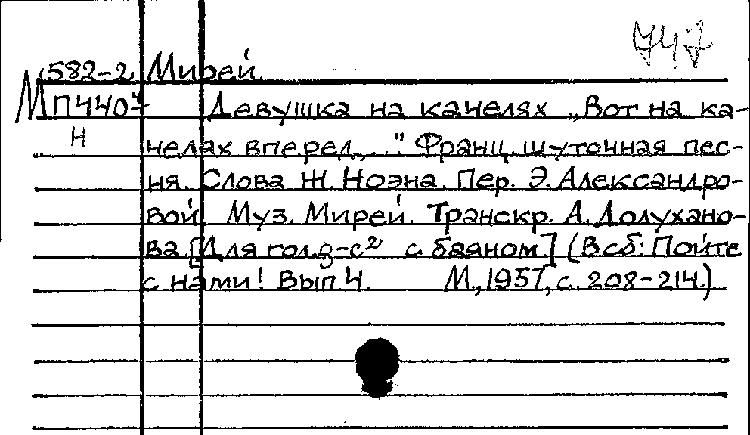 747
582-2 Мирей
М П440-
Н
Девушка на качелях „Вот на ка-
челах вперед,..." Франц. шуточная пес-
ня. Слова Ж. Ноэна. Пер. Э. Александро-
вой. Муз. Мирей. Транскр. А. Долухано-
ва. [Для гол. g-c² с баяном.] (В сб: Пойте
с нами! Вып 4. М, 1957, с. 208-214.)